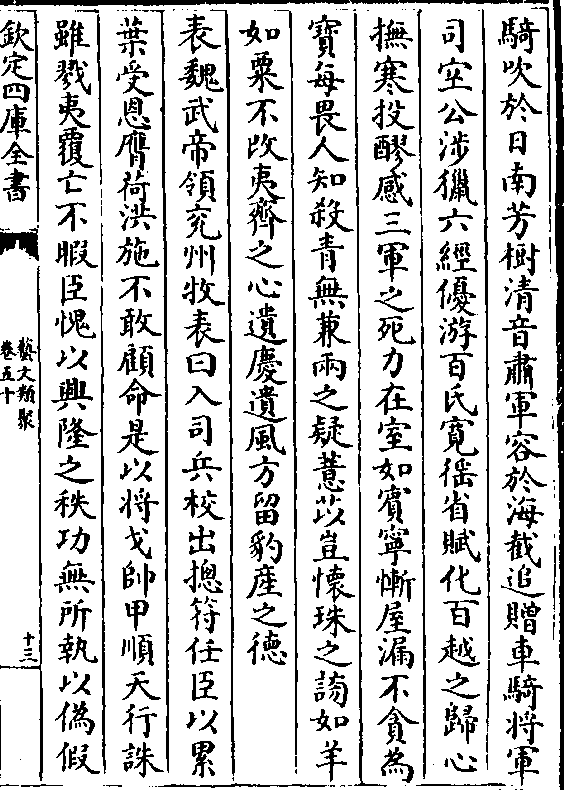 騎吹於日南芳樹清音肅軍容於海截追贈車騎將軍
司空公涉獵六經優游百氏寛徭省賦化百越之歸心
撫寒投醪感三軍之死力在室如賓寧慚屋漏不貪為
寶每畏人知殺青無兼兩之疑薏苡豈懐珠之謗如羊
如粟不改夷齊之心遺慶遺風方留豹産之德
表魏武帝領兖州牧表曰入司兵校出摠符任臣以累
葉受恩膺荷洪施不敢顧命是以将戈帥甲順天行誅
雖戮夷覆亡不暇臣愧以興隆之秩功無所執以偽假
欽定四庫全書
藝文類聚
卷五十
十三